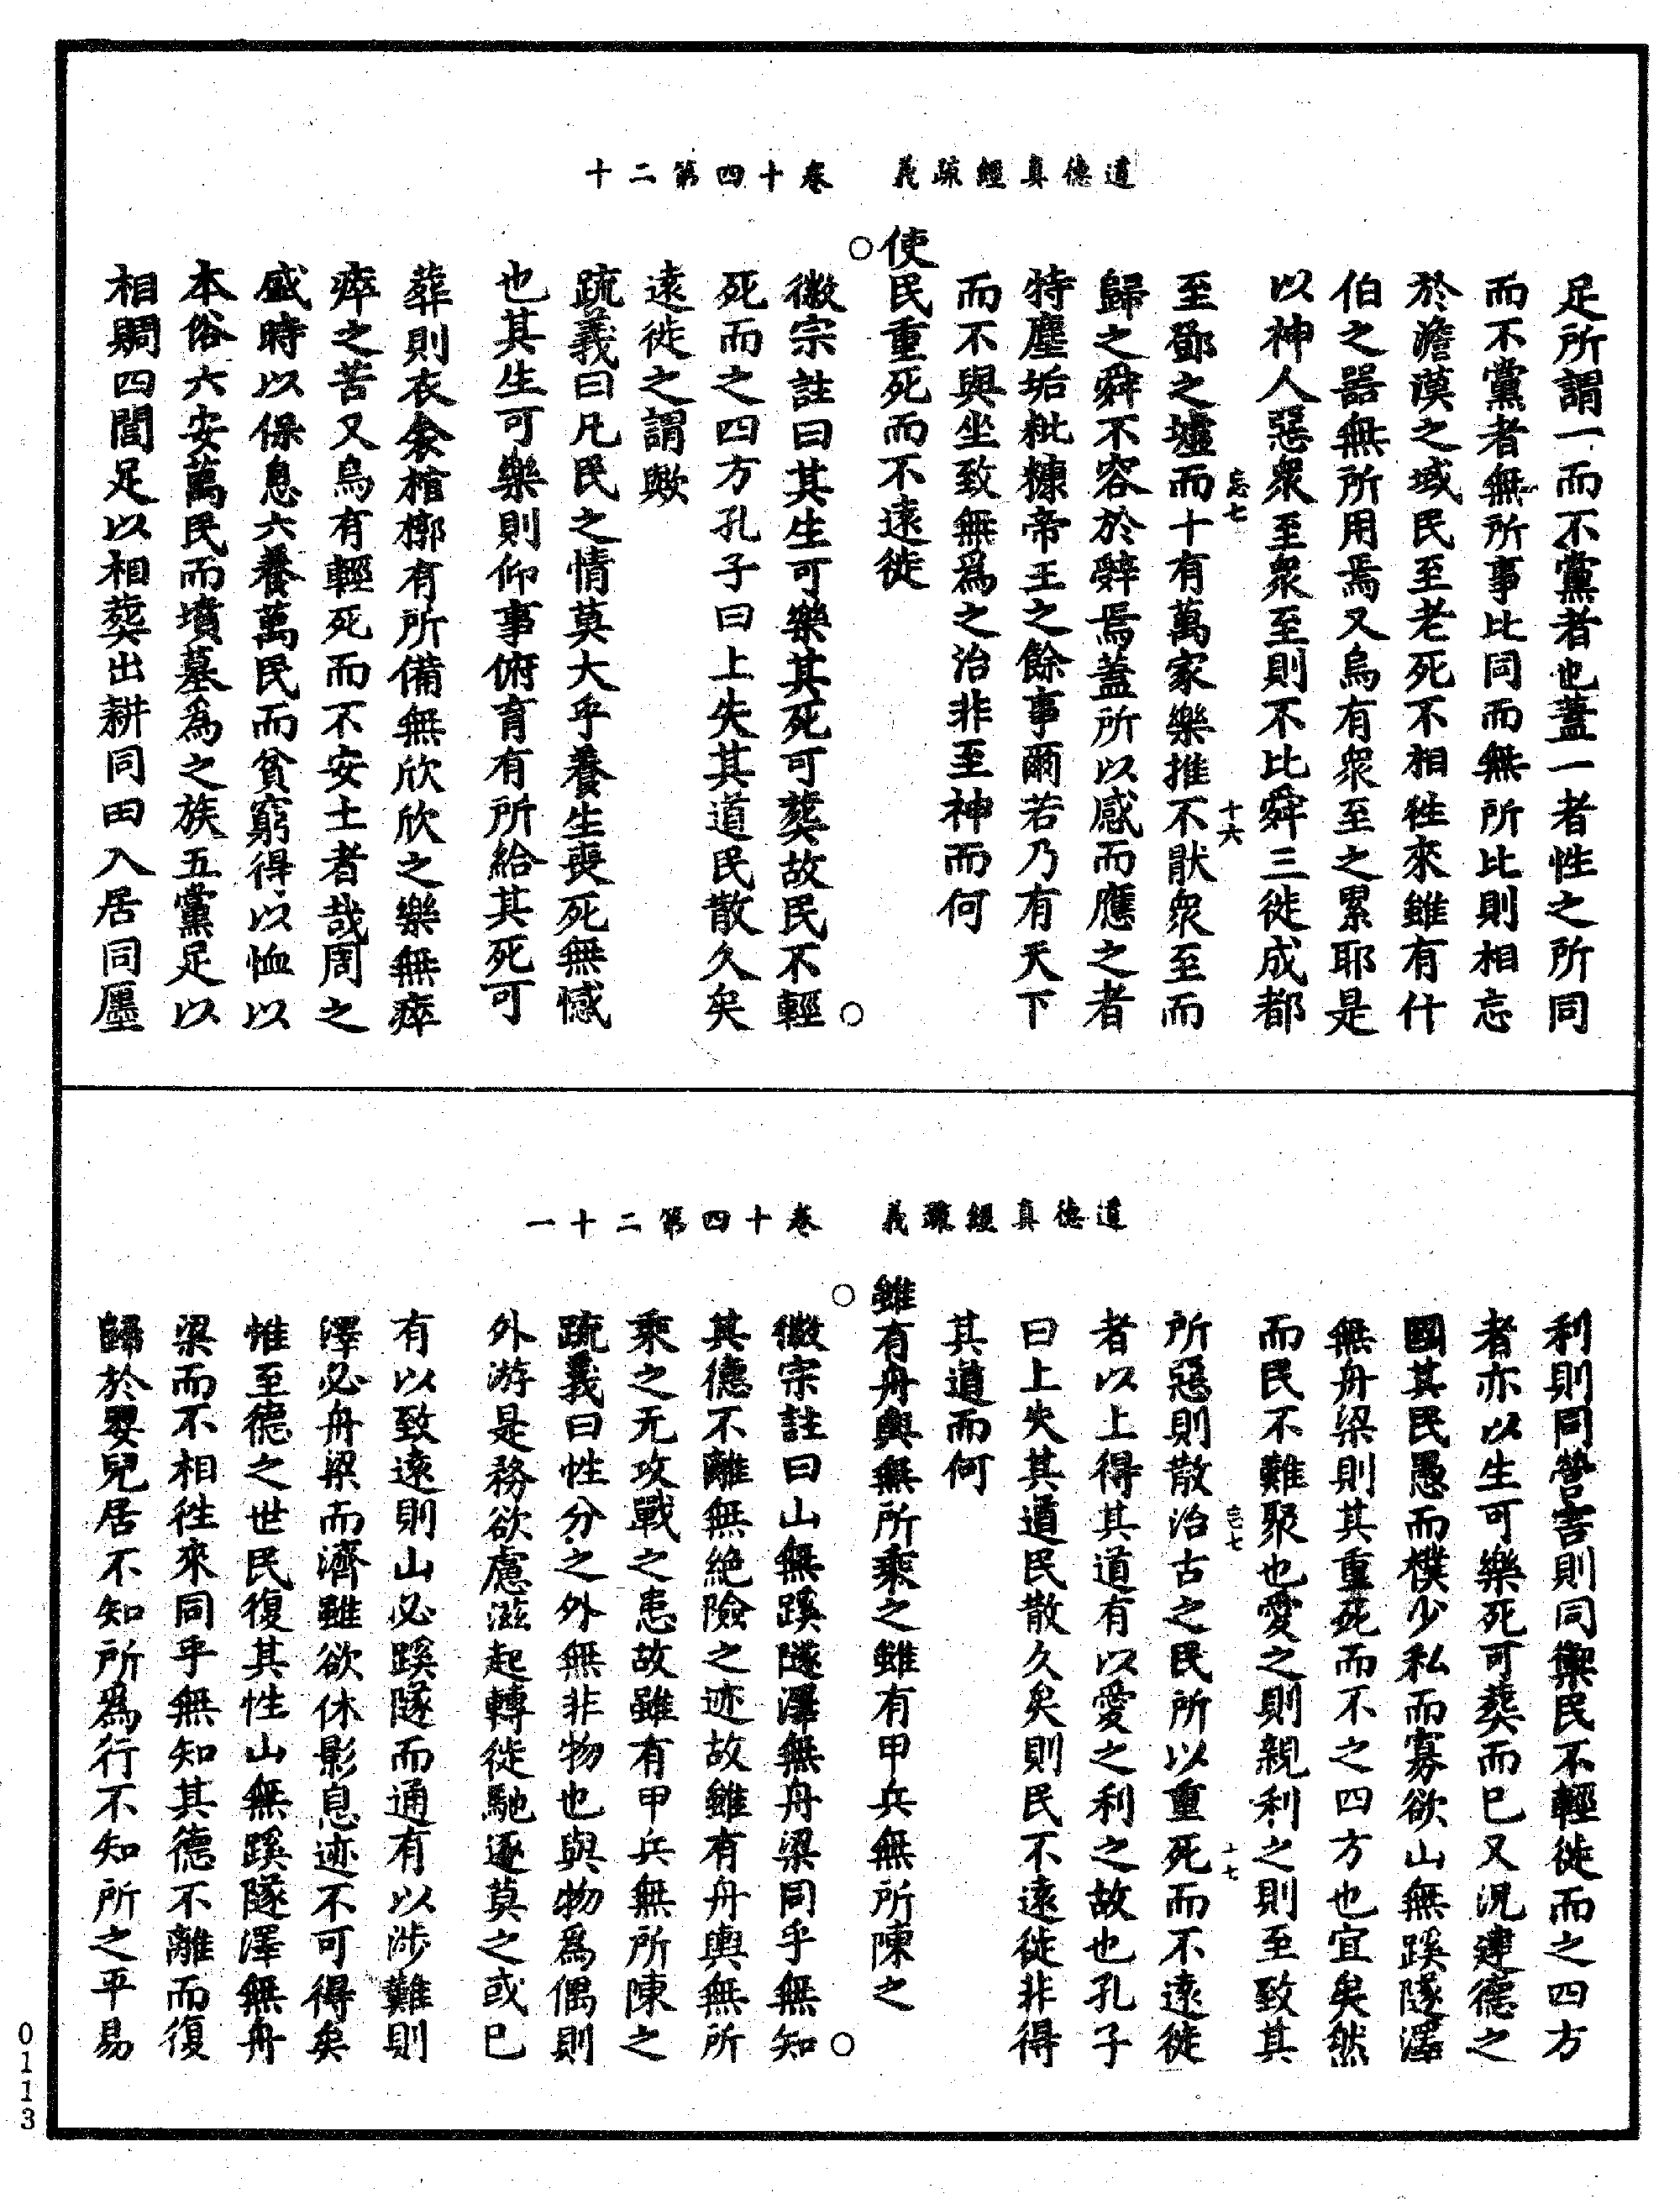 道德真經疏義　卷十四第二十
足所謂一而不黨者也蓋一者性之所同
而不黨者無所事比同而無所比則相忘
於澹漠之域民至老死不相徃來雖有什
伯之噐無所用焉又烏有衆至之累耶是
以神人惡衆至衆至則不比舜三徙成都
至鄧之墟而十有萬家樂推不猒衆至而
忘七
十六
歸之舜不容於辭焉蓋所以感而應之者
特塵垢粃糠帝王之餘事爾若乃有天下
而不與坐致無爲之治非至神而何
使民重死而不遠徙
徽宗註曰其生可樂其死可葬故民不輕
死而之四方孔子曰上失其道民散久矣
遠徙之謂歟
疏義曰凡民之情莫大乎養生喪死無憾
也其生可樂則仰事俯育有所給其死可
葬則衣衾棺槨有所備無欣欣之樂無瘁
瘁之苦又烏有輕死而不安土者哉周之
盛時以保息六養萬民而貧窮得以恤以
本俗六安萬民而墳墓爲之族五黨足以
相賙四閭足以相葬出耕同田入居同廛
道德真經疏義　卷十四第二十一
利則同營害則同禦民不輕徙而之四方
者亦以生可樂死可葬而已又況建德之
國其民愚而樸少私而寡欲山無蹊隧澤
無舟梁則其重死而不之四方也宜矣然
而民不難聚也愛之則親利之則至致其
所惡則散治古之民所以重死而不遠徙
忘七
十七
者以上得其道有以愛之利之故也孔子
曰上失其道民散久矣則民不遠徙非得
其道而何
雖有舟輿無所乘之雖有甲兵無所陳之
徽宗註曰山無蹊隧澤無舟梁同乎無知
其德不離無絶險之迹故雖有舟輿無所
乘之无攻戰之患故雖有甲兵無所陳之
疏義曰性分之外無非物也與物爲偶則
外游是務欲慮滋起轉徙馳逐莫之或已
有以致遠則山必蹊隧而通有以涉難則
澤必舟梁而濟雖欲休影息迹不可得矣
惟至德之世民復其性山無蹊隧澤無舟
梁而不相徃來同乎無知其德不離而復
歸於嬰兒居不知所爲行不知所之平易
0113